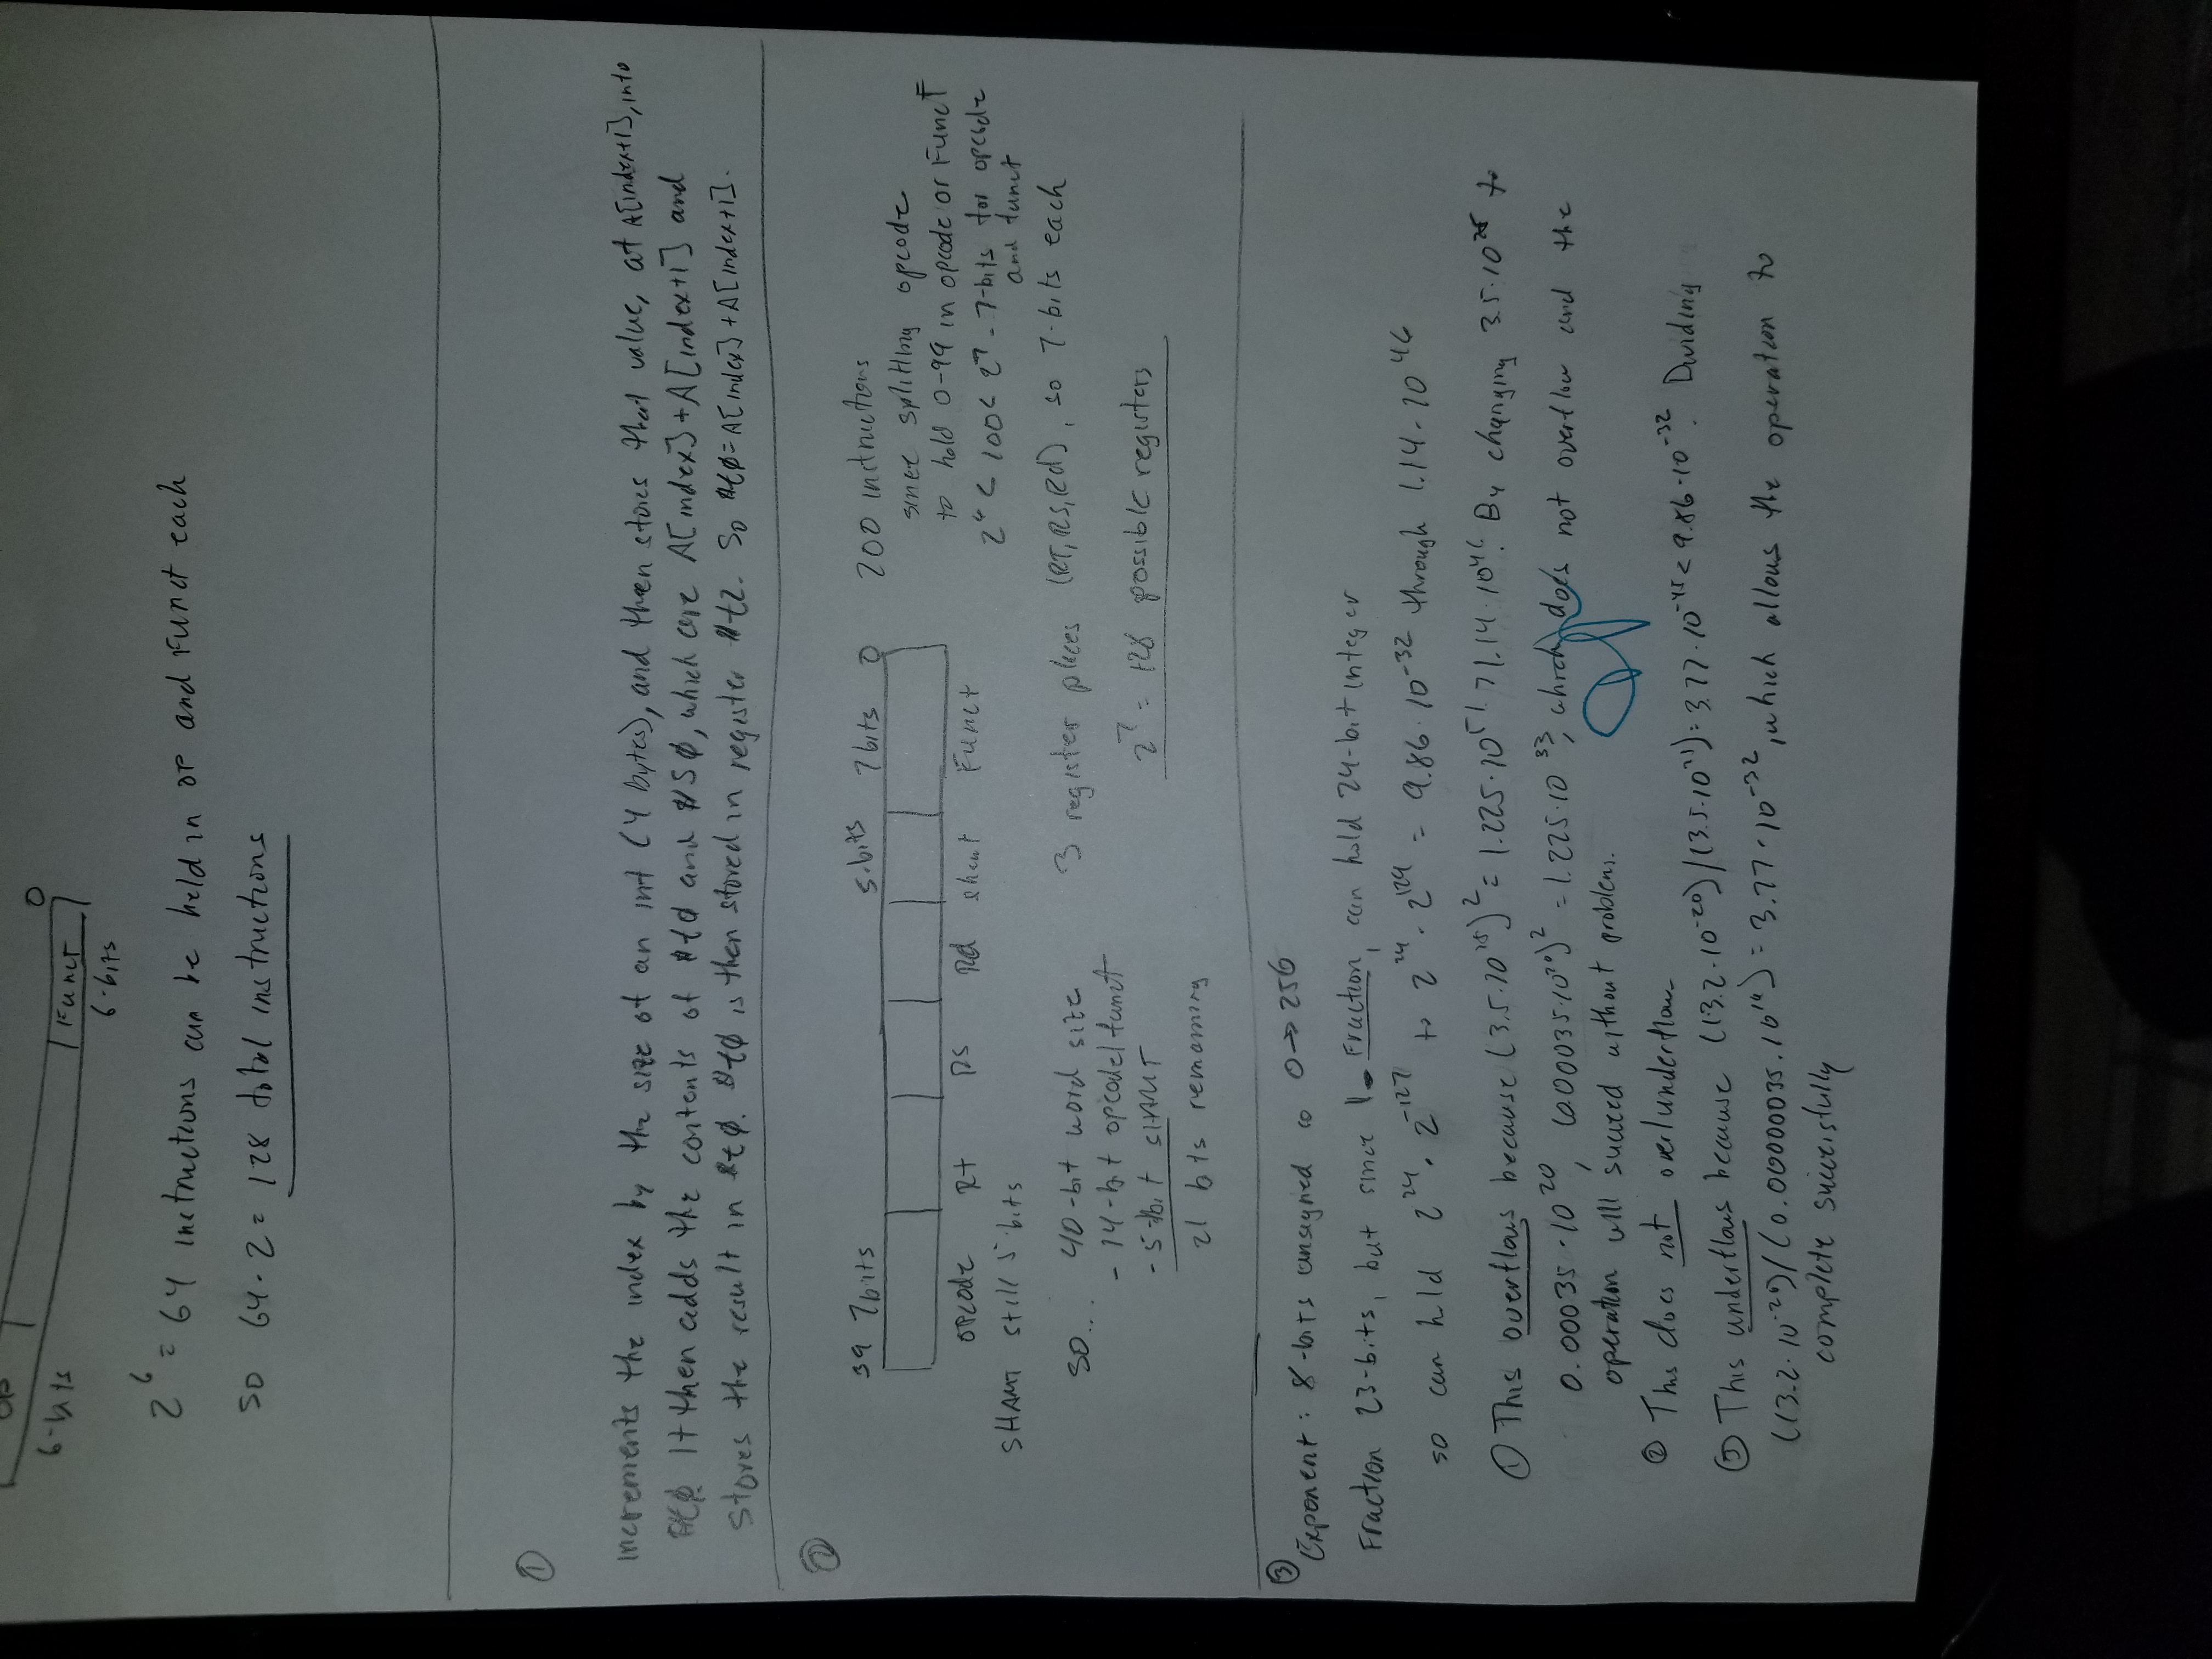 OP
0
6-bits
Funct
6-bits
2^6 = 64 instructions can be held in OP and Funct each
so 64 · 2 = 128 total instructions
①
increments the index by the size of an int (4 bytes), and then stores that value, at A[index+1], into
$t0. It then adds the contents of $t0 and $s0, which are A[index] + A[index+1] and
stores the result in $t0. $t0 is then stored in register $t2. So $t0 = A[index] + A[index+1].
②
39 7bits 5-bits 7bits 0
opcode Rt Rs Rd shamt Funct
200 instructions
since splitting opcode
to hold 0-99 in opcode or Funct
2^6 < 100 < 2^7 - 7-bits for opcode
and funct
SHAMT still 5-bits
so... 40-bit word size
- 14-bit opcode/funct
- 5-bit SHAMT
21 bits remaining
3 register places (RT, RS, Rd), so 7-bits each
2^7 = 128 possible registers
③
Exponent: 8-bits unsigned so 0→256
Fraction 23-bits, but since 1. Fraction, can hold 24-bit integer
so can hold 2^24 · 2^-127 to 2^24 · 2^129 = 9.86 · 10^-32 through 1.14 · 10^46
① This overflows because (3.5 · 10^25)^2 = 1.225 · 10^51 > 1.14 · 10^46. By changing 3.5 · 10^25 to
0.00035 · 10^20, (0.00035 · 10^20)^2 = 1.225 · 10^33, which does not overflow and the
operation will succeed without problems.
② This does not over/underflow
③ This underflows because (13.2 · 10^-20)/(3.5 · 10^21) = 3.77 · 10^-45 < 9.86 · 10^-32. Dividing
((13.2 · 10^-20)/(0.00000035 · 10^14) = 3.77 · 10^-32, which allows the operation to
complete successfully